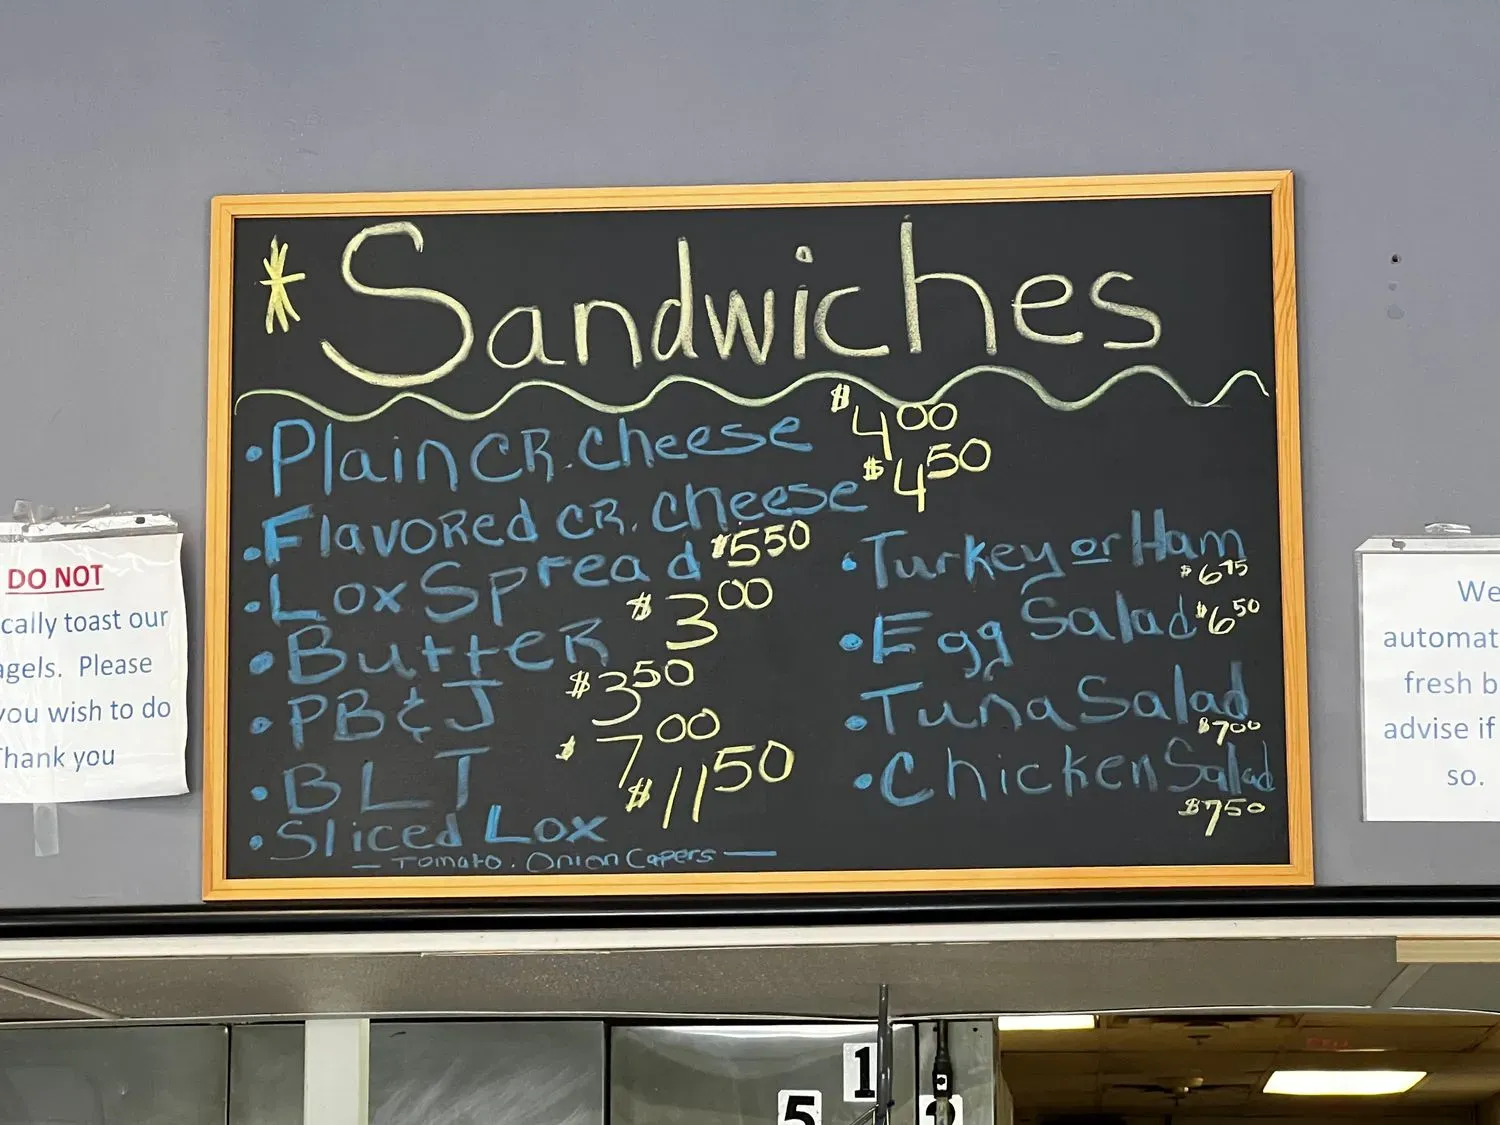 *Sandwiches
•Plain CR. Cheese $4.00
•Flavored CR. Cheese $4.50
•Lox Spread $5.50
•Butter $3.00
•PB&J $3.50
•BLT $7.00
•Sliced Lox $11.50
— Tomato. Onion Capers —
•Turkey or Ham
$6.75
•Egg Salad $6.50
•Tuna Salad
$7.00
•Chicken Salad
$7.50
DO NOT
cally toast our
agels. Please
you wish to do
Thank you
We
automat
fresh b
advise if
so.
1
5